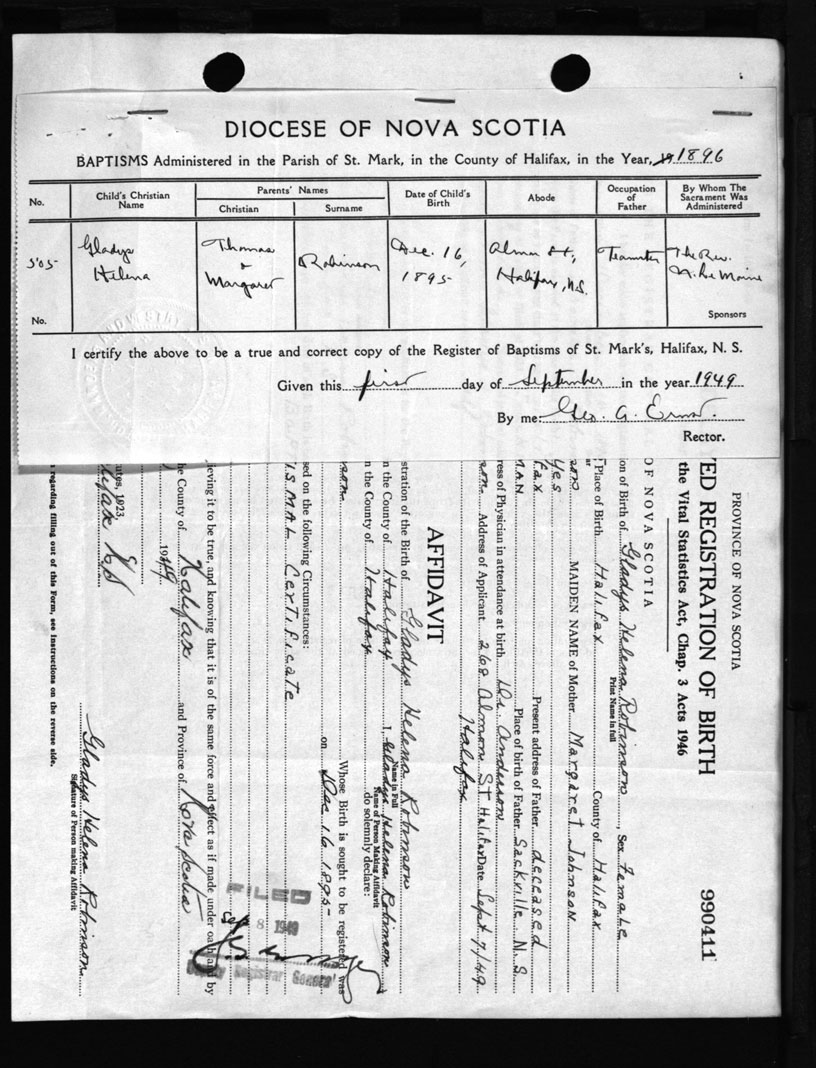 DIOCESE OF NOVA SCOTIA
BAPTISMS Administered in the Parish of St. Mark, in the County of Halifax, in the Year, 1896
No. Child's Christian Name Parents' Names Christian Surname Date of Child's Birth Abode Occupation of Father By Whom The Sacrament Was Administered
505 Gladys Helena Thomas & Margaret Robinson Dec. 16, 1895 Almon St., Halifax, N.S. Teamster The Rev. N. Le Moine
No. Sponsors
I certify the above to be a true and correct copy of the Register of Baptisms of St. Mark's, Halifax, N. S.
Given this first day of September in the year 1949
By me Geo. A. Ernst.
Rector.
PROVINCE OF NOVA SCOTIA
TED REGISTRATION OF BIRTH 990411
the Vital Statistics Act, Chap. 3 Acts 1946
OF NOVA SCOTIA
ion of Birth of Gladys Helena Robinson, Sex Female
Print Name in full
Place of Birth Halifax County of Halifax
son MAIDEN NAME of Mother Margaret Johnson
Yes
fax Present address of Father deceased
MAN Place of birth of Father Sackville N. S
ress of Physician in attendance at birth Dr. Anderson
son. Address of Applicant 268 Almon St Halifax Date Sept 7/49
Halifax
AFFIDAVIT
stration of the Birth of Gladys Helena Robinson
Name in Full
in the County of Halifax I, Gladys Helena Robinson
Name of Person Making Affidavit
n the County of Halifax do solemnly declare:
son. Whose Birth is sought to be registered was
on Dec 16 1895
sed on the following Circumstances:
ISMAL Certificate
ieving it to be true, and knowing that it is of the same force and effect as if made under oath and by
he County of Halifax and Province of Nova Scotia
1949
utes, 1923.
lifax NS
Gladys Helena Robinson
Signature of Person making Affidavit
regarding filling out of this Form, see Instructions on the reverse side.
FILED
Sep 8 1949
Deputy Registrar General